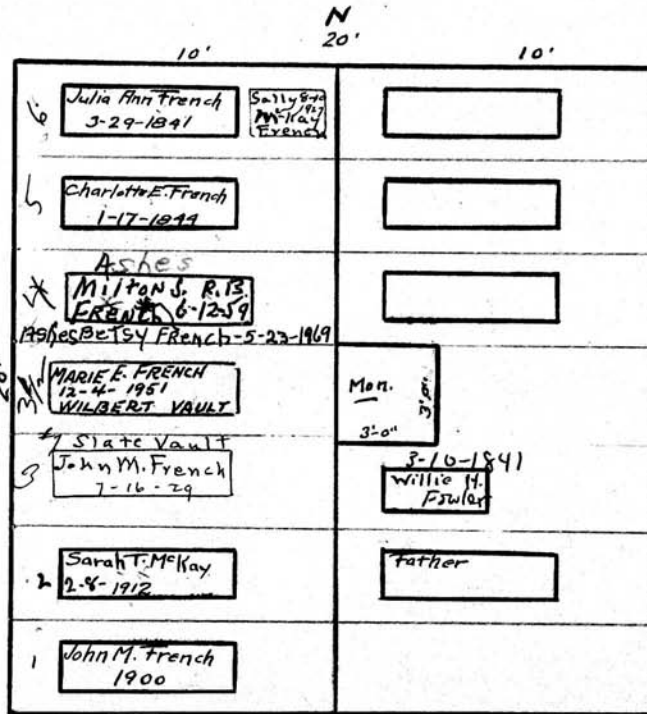 N
20'
10'
10'
6
Julia Ann French
3-29-1841
Sally 8-10
McKay 1927
French
5
Charlotte E. French
1-17-1844
Ashes
4
Milton S. R.B.
French 6-12-59
Ashes Betsy French-5-23-1969
3 1/2
MARIE E. FRENCH
12-4-1951
WILBERT VAULT
Mon.
3'0"
3'-0"
Slate Vault
3
John M. French
7-16-29
3-10-1841
Willie H.
Fowler
2
Sarah T. McKay
2-8-1912
Father
1
John M. French
1900